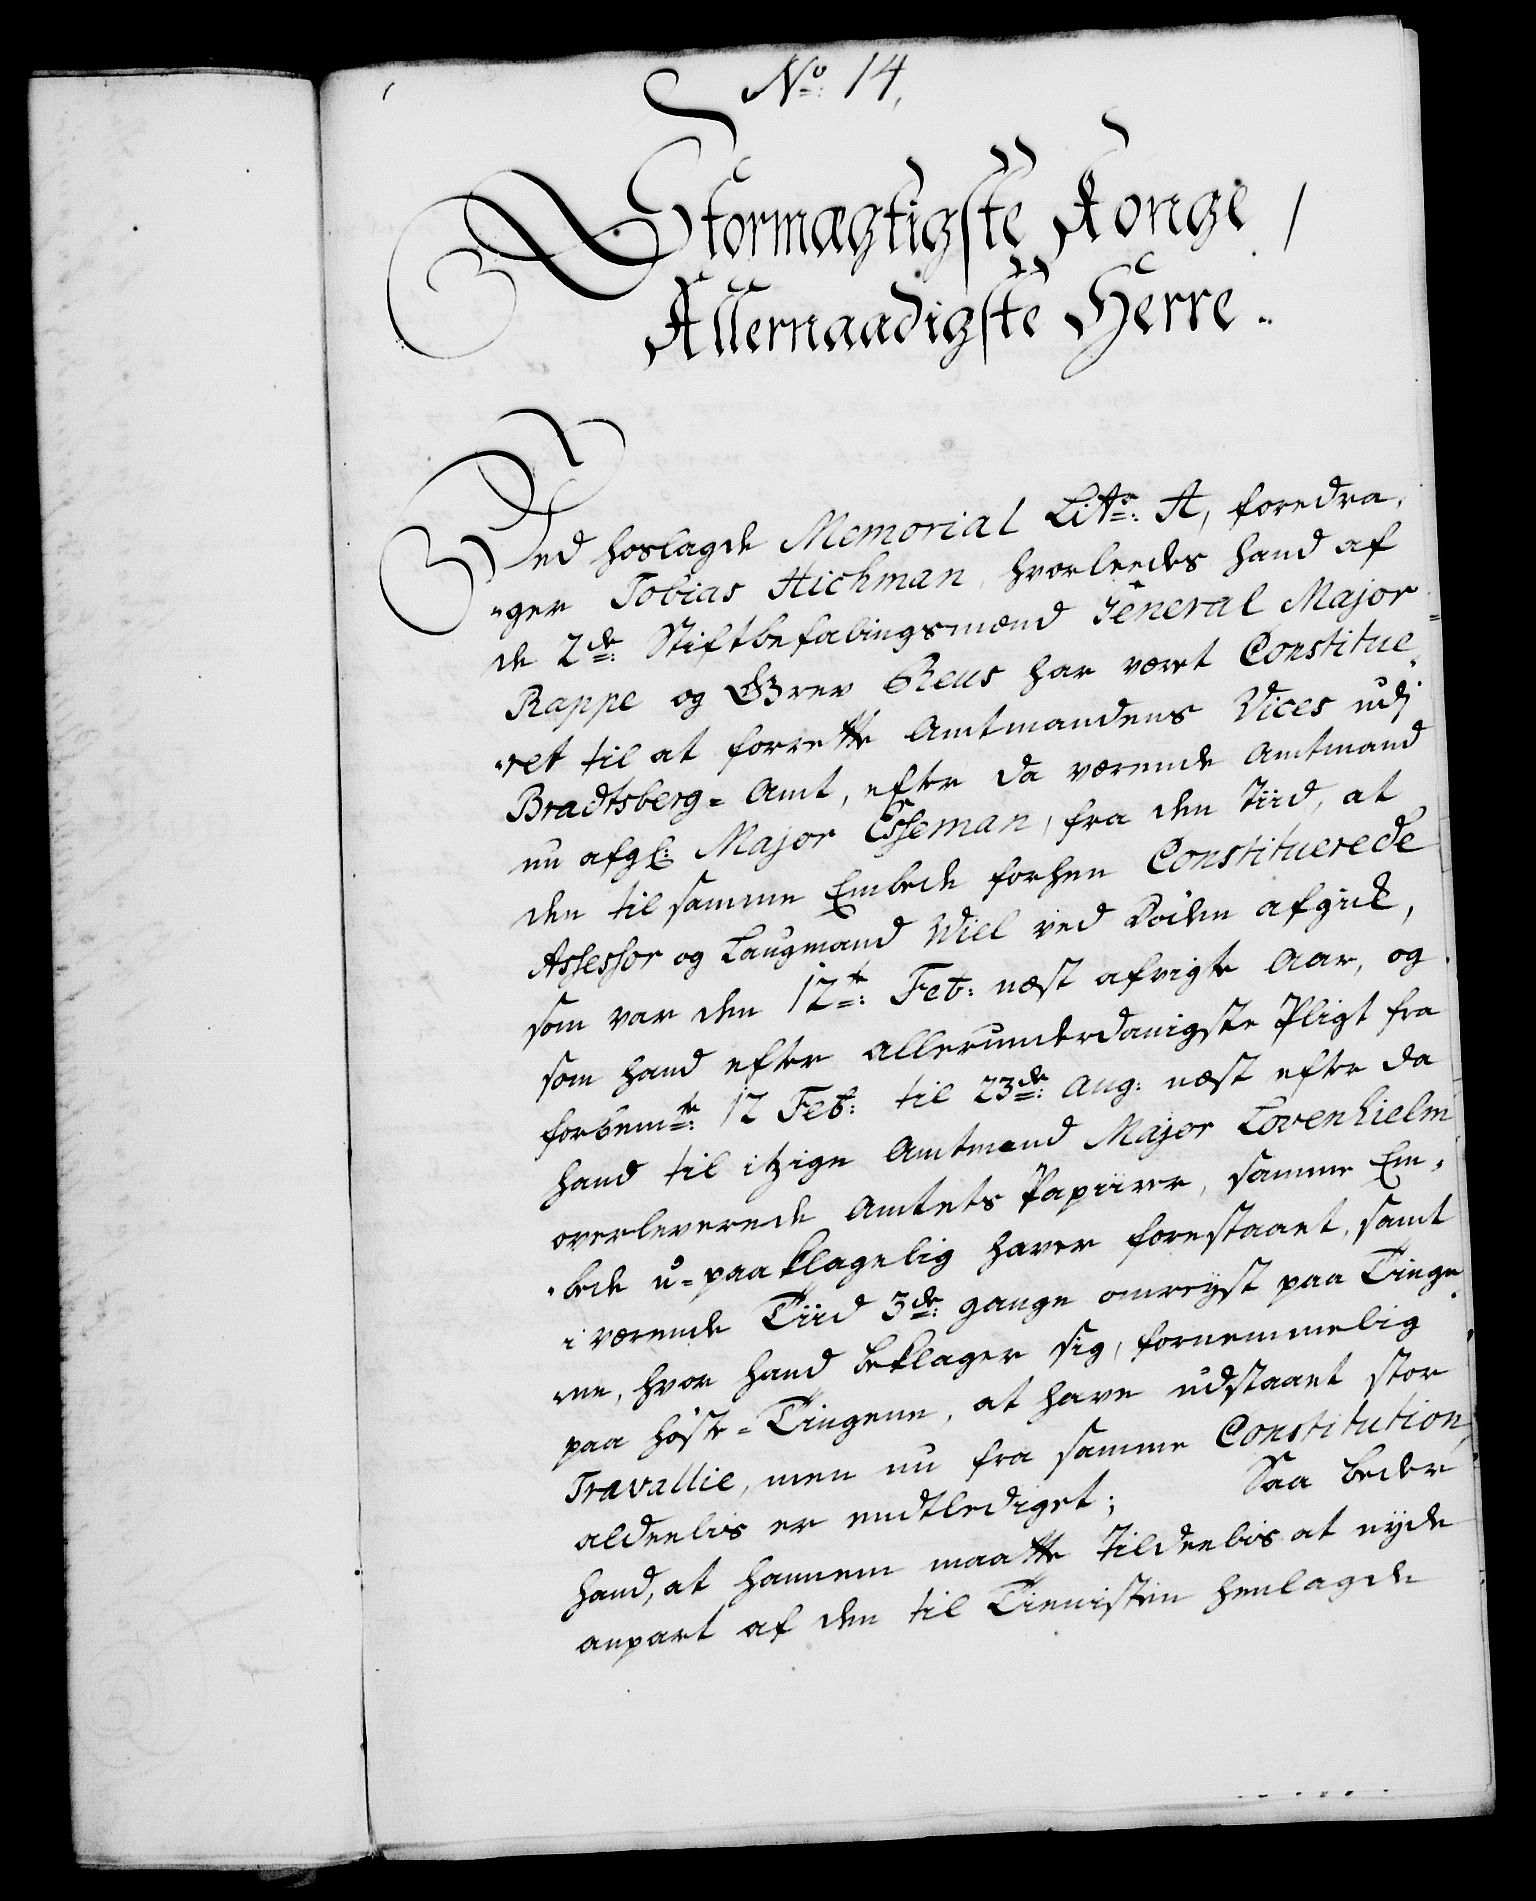 No: 14,
Stormægtigste Konge /
Allernaadigste Herre.
Ved hoslagde Memorial Litr: A, foredra,
"ger Tobias Aichman, hvorleedes hand af
de 2de: Stiftbefalingsmænd General Major
Rappe og Grev Reus har været Constitue-
"ret til at forrette Amtmandens Vices udj
Bradtsberg= Amt, efter da værende Amtmand
nu afgl: Major Esseman, fra den Tiid, at
den til samme Embede forhen Constituerede
Assessor og Laugmand Wiel ved Döden afgick,
som var den 12te: Feb: næst afvigte Aar, og
som hand efter allerunderdanigste Pligt fra
forbemte: 12 Feb: til 23de: Aug: næst efter da
hand til itzige Amtmand Major Lövenhielm
overleverede Amtets Papiirer, samme Em,
"bede u=paaklagelig haver forestaaet, samt
i værende Tiid 3de: gange omreyst paa Tinge,
"ne, hvor hand beklager sig, fornemmelig
paa Höste=Tingene, at have udstaaet stor
Travallie, men nu fra samme Constitution,
aldeelis er endtlediget; Saa beder
hand, at hannem maatte tildeelis at nyde
anpart af den til Tienisten henlagde